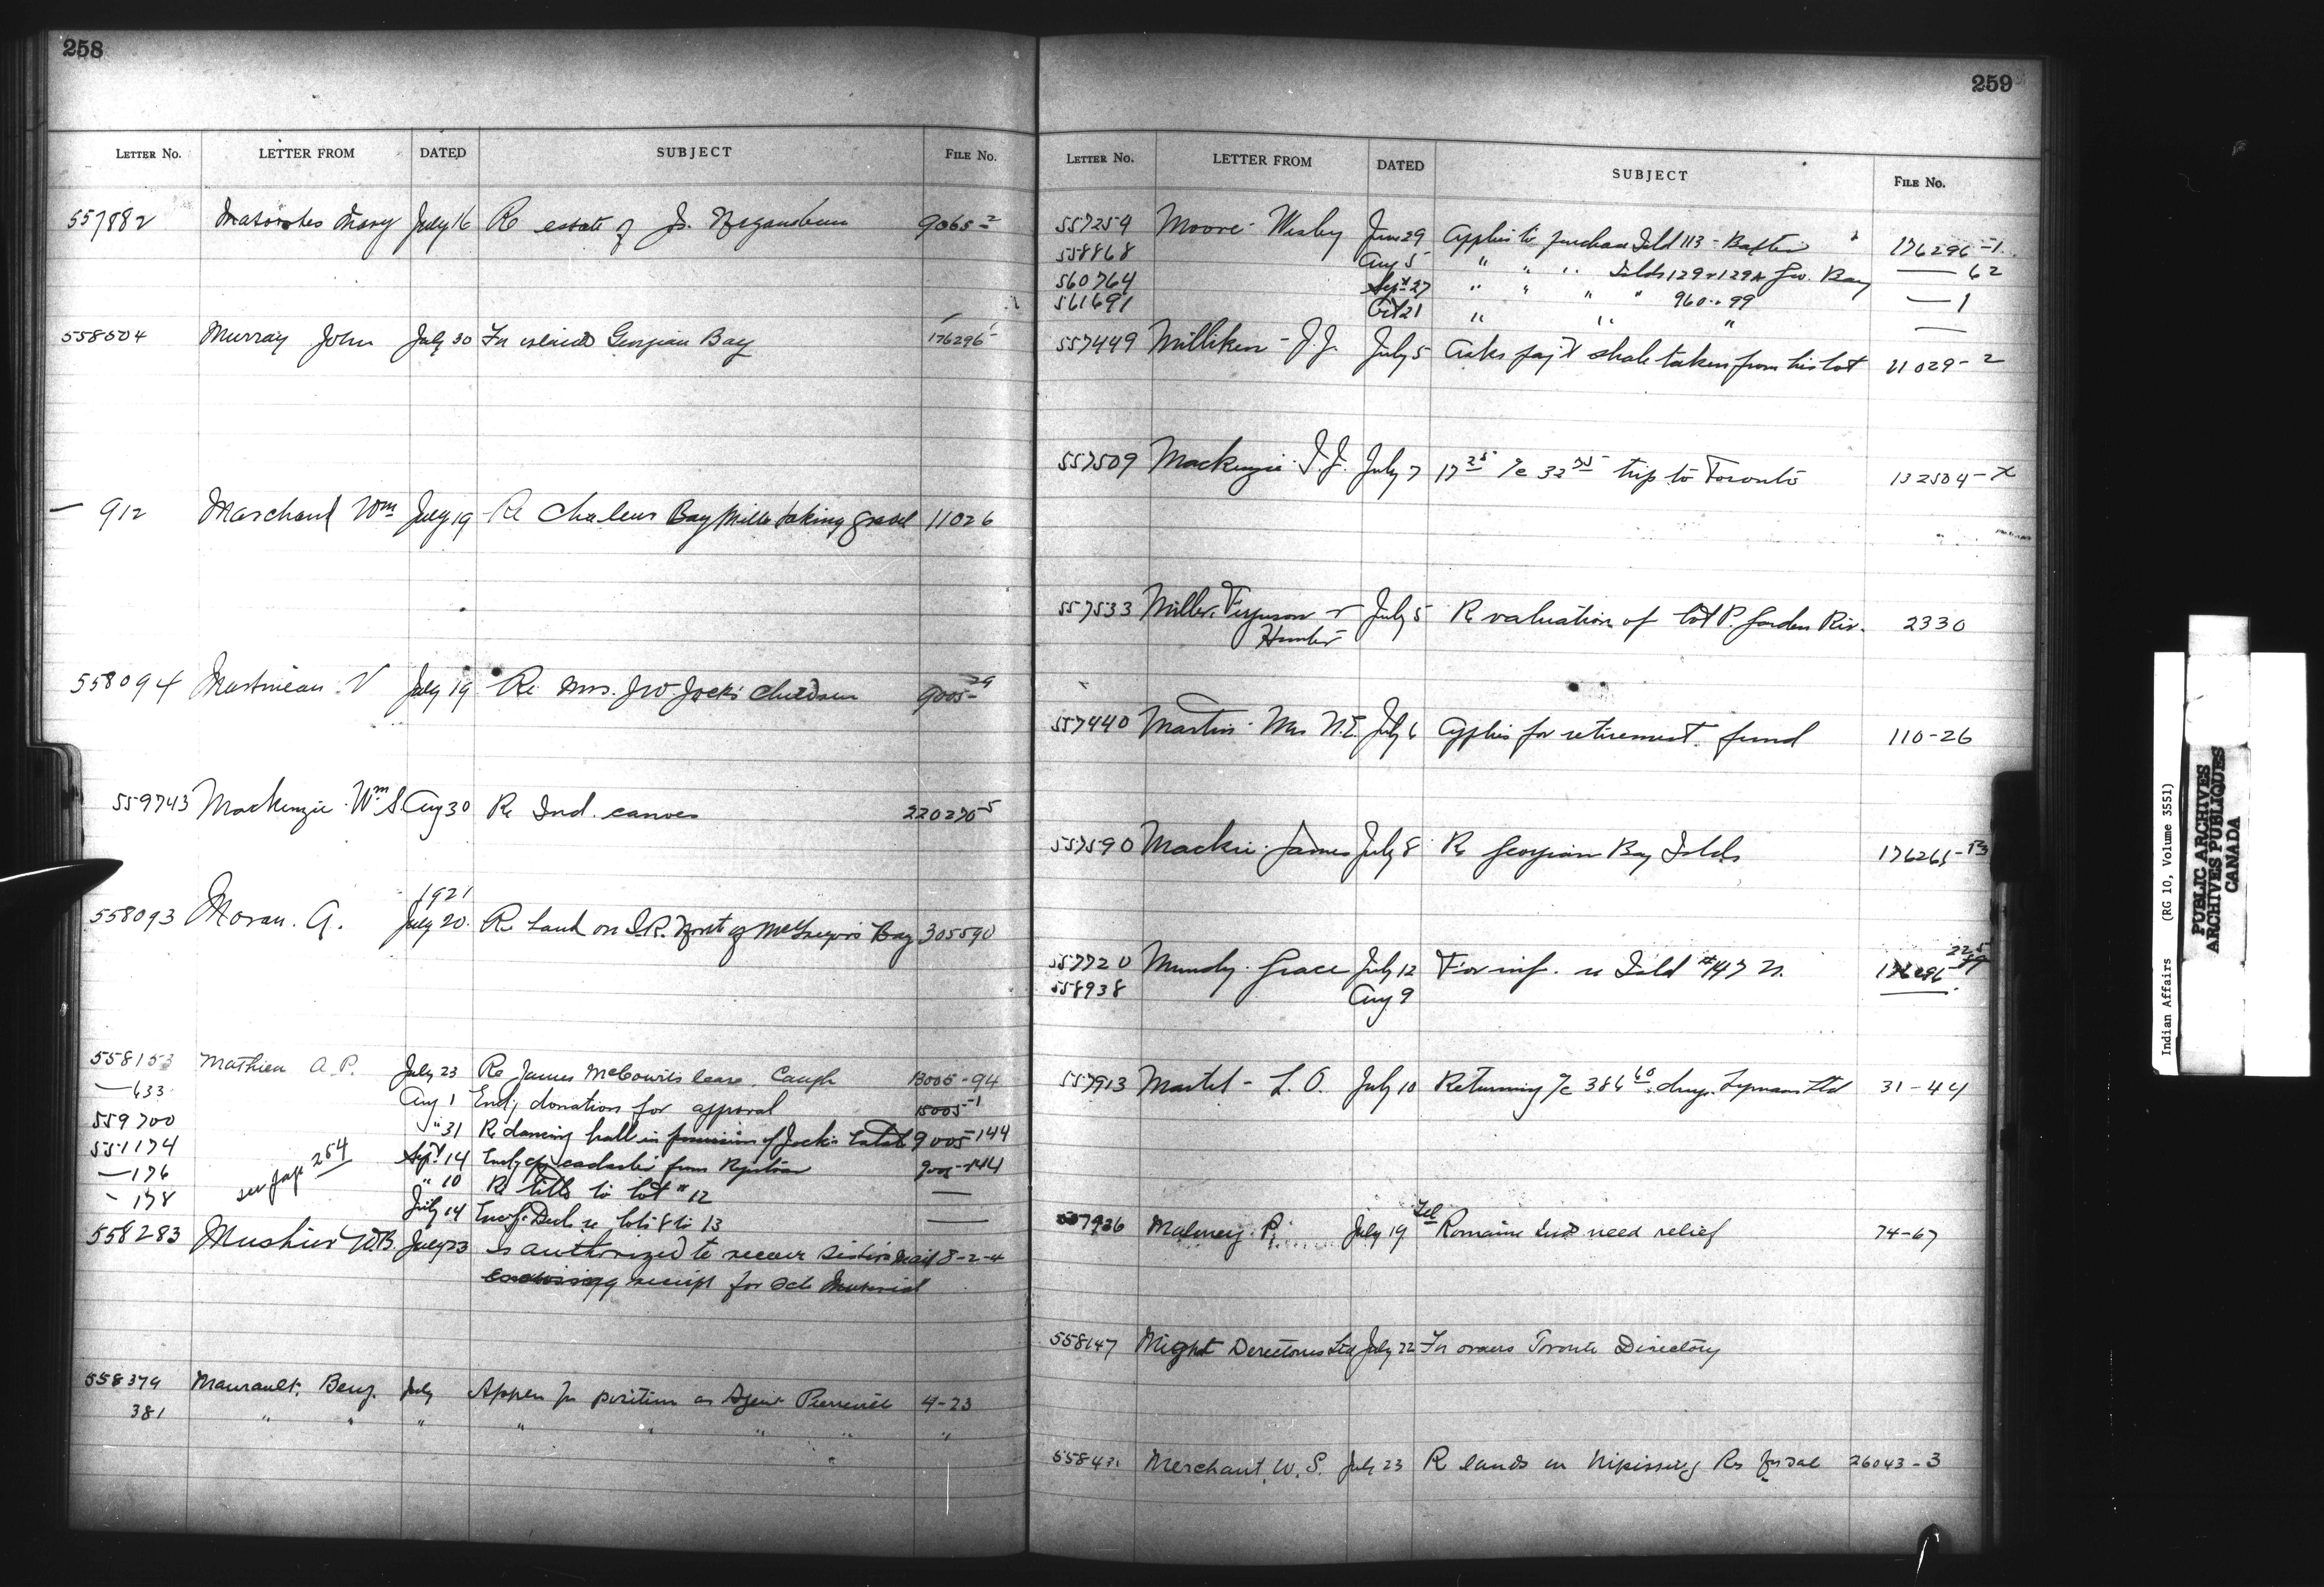 258
LETTER No. LETTER FROM DATED SUBJECT FILE No.
557882 Mary July 16 Re estate of Js. 9065-2
558504 Murray John July 30 For islands Georgian Bay 176296
— 912 Marchand Wm July 19 Re Chaleur Bay Mills taking gravel 11026
558094 Martineau V July 19 Re Mrs. JW Jocks children 9005-29
559743 Mackenzie Wm S. Aug 30 Re Ind. canoes 220270-5
1921
558093 Moran. A. July 20. Re land on I.R. North of McGregors Bay 305590
558153 Mathieu A.P. July 23 Re James McGowits lease. Caugh 13005-94
— 633 Aug 1 Encl, donation for approval 15005-1
559700 " 31 Re dancing hall in possession of Jocks Estate 9005-144
551174 Sept 14 Encl, cop from Registrar 9005-144
— 176 see page 254 " 10 Re title to lot # 12 —
" 178 July 14 Encl. Decl. re lots 8 to 13 —
558283 W.B. July 23 is authorized to receive mail 8-2-4
receipt for Sch Material
558379 Maurault, Benj. July Applen for position as Agent Pierreville 4-23
381 " " " " " " " "
259
LETTER No. LETTER FROM DATED SUBJECT FILE No.
557259 Moore Wesley June 29 Applies to purchase Isld 113 - Baxter 176296-1
558868 Aug 5 " " " Islds 129 & 129A Geo. Bay — 62
560764 Sept 27 " " " " 960.. 99 — 1
561691 Oct 21 " " " —
557449 Milliken - J.J. July 5 Asks pay't shale taken from his lot 11029-2
557509 Mackenzie J.J. July 7 17 25 /c 32 75 trip to Toronto 132504-X
557533 Miller, Ferguson & July 5 Re valuation of lot P. Garden Riv. 2330
Hunter
557440 Martin - Mrs N.E. July 6 Applies for retirement fund 110-26
557590 Mackie - James July 8 Re Georgian Bay Islds 176265-
557720 Mundy - Grace July 12 For inf. re Isld #47 176296
558938 Aug 9
557913 Martel - L.O. July 10 Returning /c 386 60 drugs. Lymans Ltd 31-44
Tel
557936 Maloney - P. July 19 Romaine Inds need relief 74-67
558147 Might Directories Ltd July 22 For orders Toronto Directory
55843 Merchant W.S. July 23 R lands on Nipissing Rs for sale 26043-3
Indian Affairs (RG 10, Volume 3551)
PUBLIC ARCHIVES
ARCHIVES PUBLIQUES
CANADA